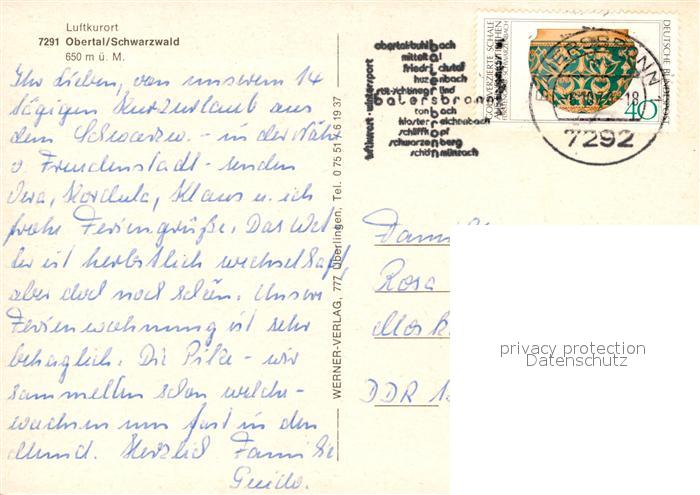 Luftkurort
7291 Obertal/Schwarzwald
650 m ü. M.
Ihr Lieben, von unserem 14
tägigen Kurzurlaub aus
dem Schwarzw. - in der Nähe
v. Freudenstadt - senden
Vera, Kordula, Klaus u. ich
frohe Feriengrüße. Das Wet
ter ist herbstlich wechselhaft,
aber doch noch schön. Unsere
Ferienwohnung ist sehr
behaglich. Die Pilze - wir
sammelten schon welche -
wachsen uns fast in den
Mund. Herzlich Familie
Guido.
WERNER-VERLAG, 777 Überlingen, Tel. 0 75 51 / 6 19 37
luftkurort · wintersport
obertal/buhlbach
mitteltal
friedrichstal
huzenbach
röt-schönegründ
baiersbronn
tonbach
kloster reichenbach
schliffkopf
schwarzenberg
schönmünzach
BAIERSBRONN
18
7292
DEUTSCHE BUNDESPOST
40
Rosa
DDR
privacy protection
Datenschutz